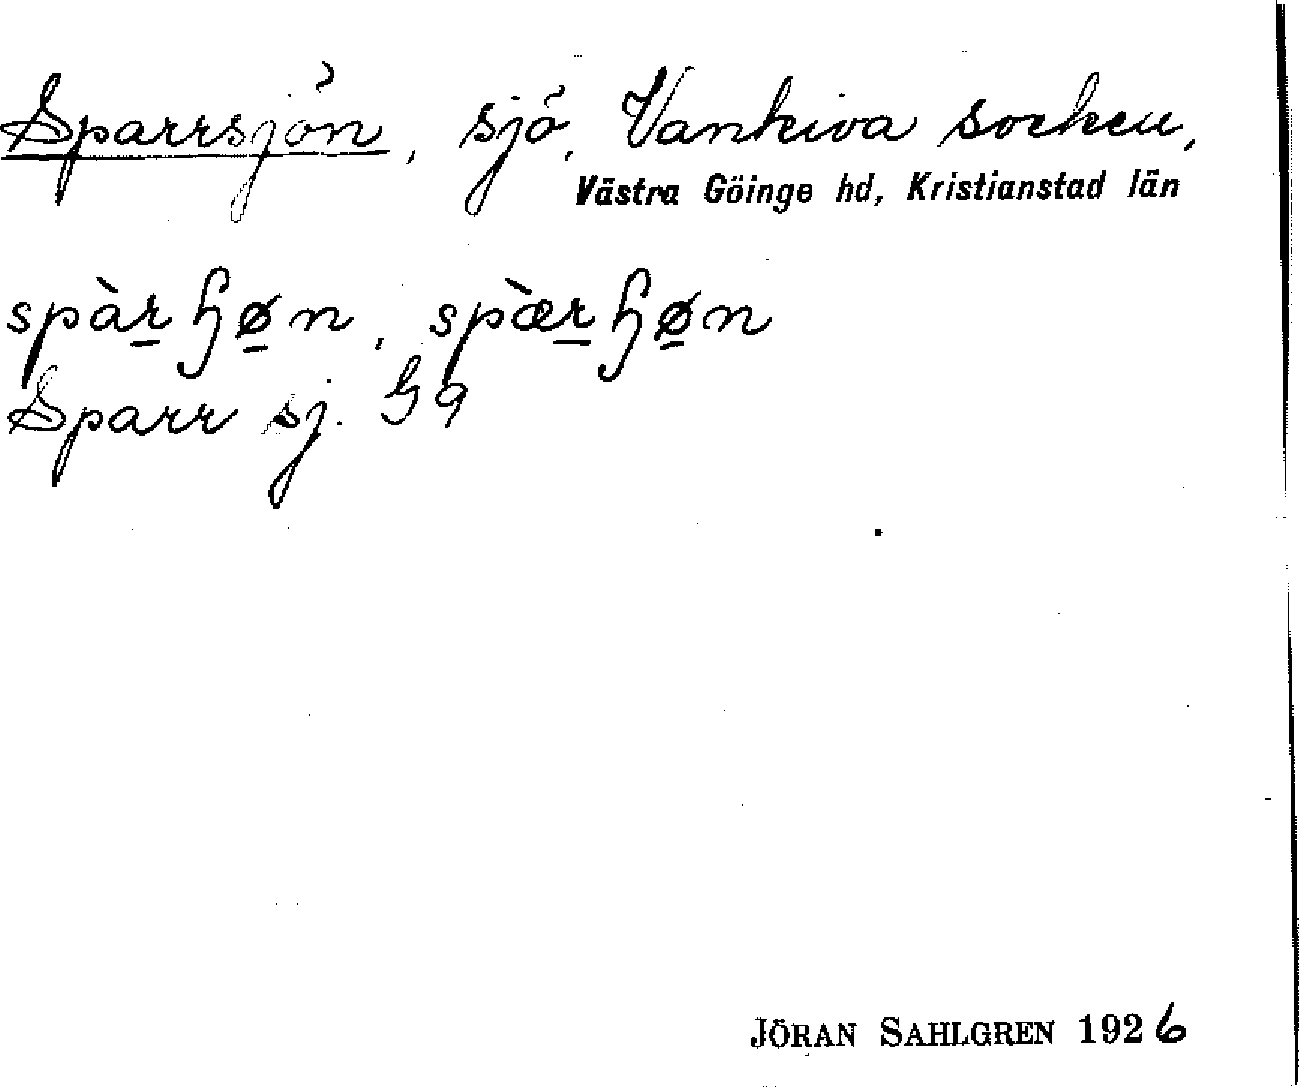 Sparrsjön, sjö, Vankiva socken,
Västra Göinge hd, Kristianstad län
spàr̲ɧø̲n, spæ̀r̲ɧø̲n
Sparr sj. G a
JÖRAN SAHLGREN 1926